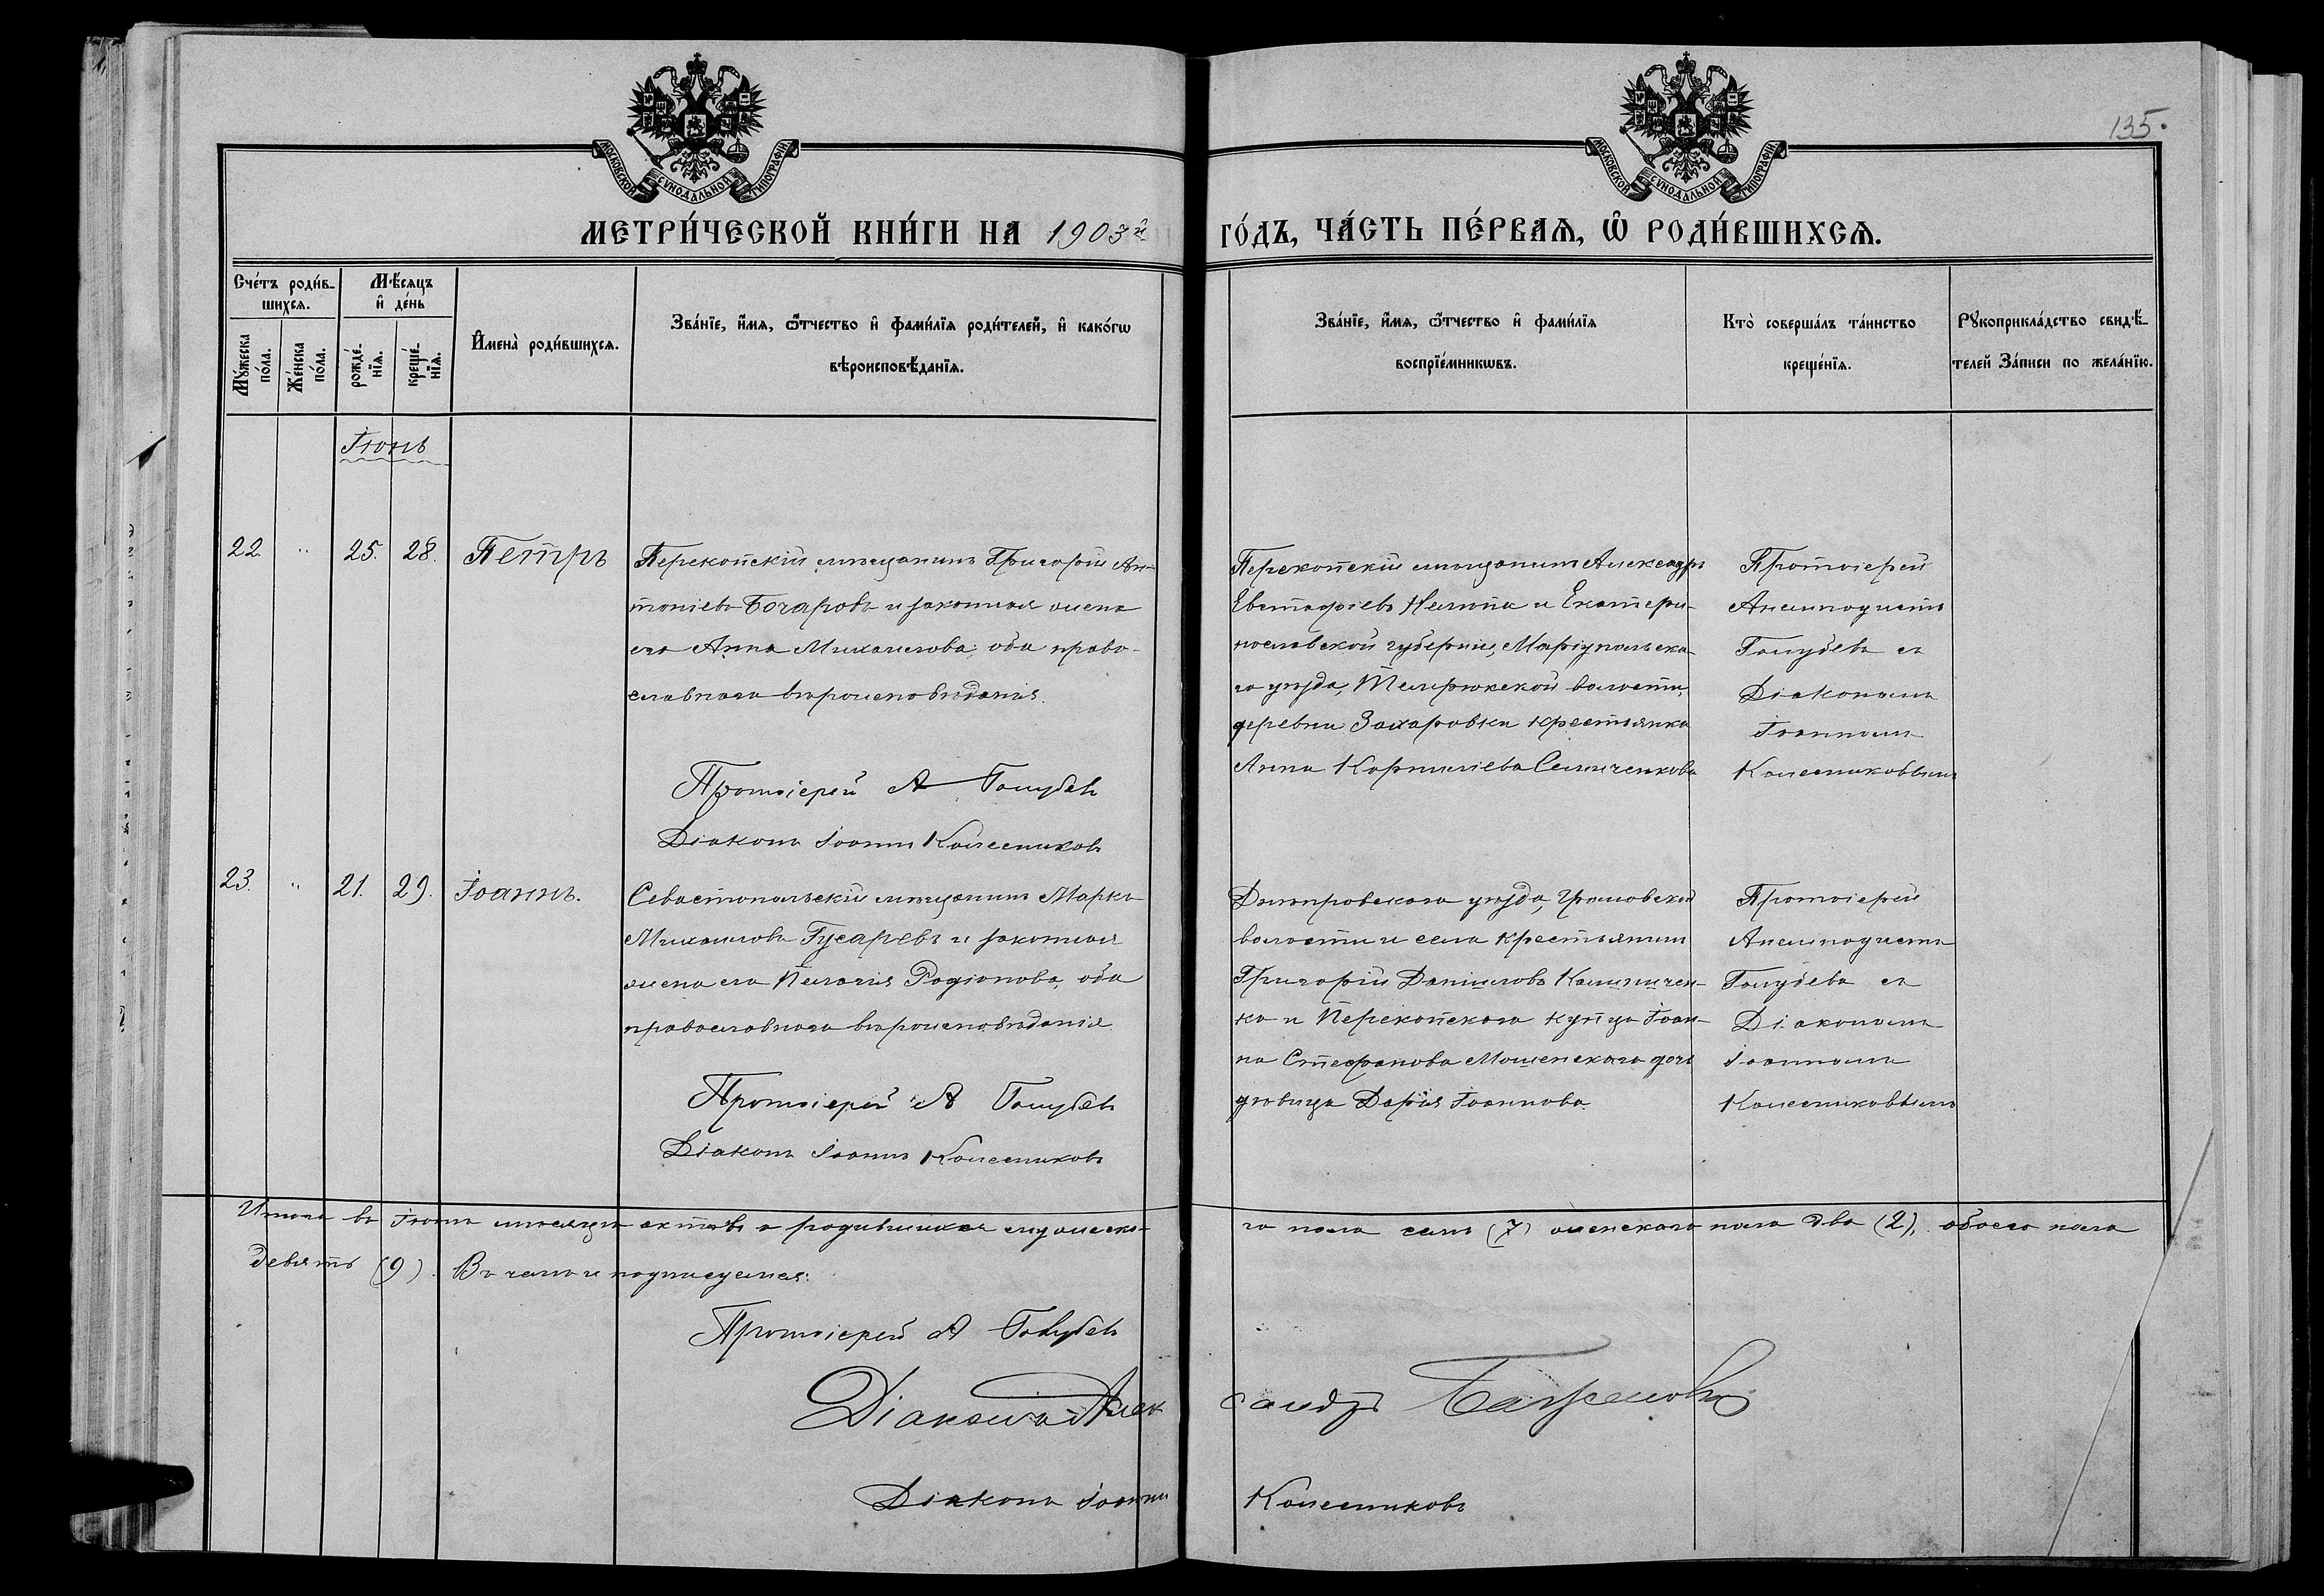 135.
МОСКОВСКОЙ СѴНОДАЛЬНОЙ ТИПОГРАФІИ
МОСКОВСКОЙ СѴНОДАЛЬНОЙ ТИПОГРАФІИ
МЕТРИ́ЧЕСКОЙ КНИ́ГИ НА 1903й
ГО́ДЪ, ЧА́СТЬ ПЕ́РВАѦ, Ѡ҆ РОДИ́ВШИХСѦ.
Сче́тъ роди́в-
шихся.
Мꙋ́жеска по́ла.
Же́нска по́ла.
Мѣ́сяцъ
и҆ де́нь
рожде́-нїя.
креще́-нїя.
И҆мена̀ роди́вшихся.
Зва́нїе, и҆́мя, ѻ҆́тчество и҆ фами́лїя роди́телей, и҆ како́гѡ
вѣроисповѣ́данїя.
Зва́нїе, и҆́мя, ѻ҆́тчество и҆ фами́лїя
воспрїе́мникѡвъ.
Кто̀ соверша́лъ та́инство
креще́нїя.
Рꙋкоприкла́дство свидѣ́-
телей За́писи по жела́нїю.
Іюнь
22. " 25. 28. Петръ
Перекопскій мѣщанинъ Григорій Ан-
тоніевъ Бочаровъ и законная жена
его Анна Михаилова, оба право-
славнаго вѣроисповѣданія.
Протоіерей А Голубевъ
Діаконъ Іоаннъ Колесниковъ
Перекопскій мѣщанинъ Александръ
Евстафіевъ и Екатери-
нославской губерніи, Маріупольска-
го уѣзда, Темрюкской волости,
деревни Захаровки крестьянка
Анна Корниліева Семиченкова
Протоіерей
Анемподистъ
Голубевъ съ
Діакономъ
Іоанномъ
Колесниковымъ
23. " 21. 29. Іоаннъ.
Севастопольскій мѣщанинъ Маркъ
Михаиловъ Гусаревъ и законная
жена его Пелагія Родіонова, оба
православнаго вѣроисповѣданія.
Протоіерей А Голубевъ
Діаконъ Іоаннъ Колесниковъ
Днѣпровскаго уѣзда, Громовской
волости и села крестьянинъ
Григорій Даніиловъ Калиничен-
ко и Перекопскаго купца Іоан-
на Стефанова Мошенскаго дочь
дѣвица Дарія Іоаннова.
Протоіерей
Анемподистъ
Голубевъ съ
Діакономъ
Іоанномъ
Колесниковымъ
Итого въ Іюнѣ мѣсяцѣ актовъ о родившихся мужеска-
го пола семь (7) женскаго пола два (2), обоего пола
девять (9). Въ чемъ и подписуемся:
Протоіерей А Голубевъ
Діаконъ Алек
сандръ Баженовъ
Діаконъ Іоаннъ
Колесниковъ